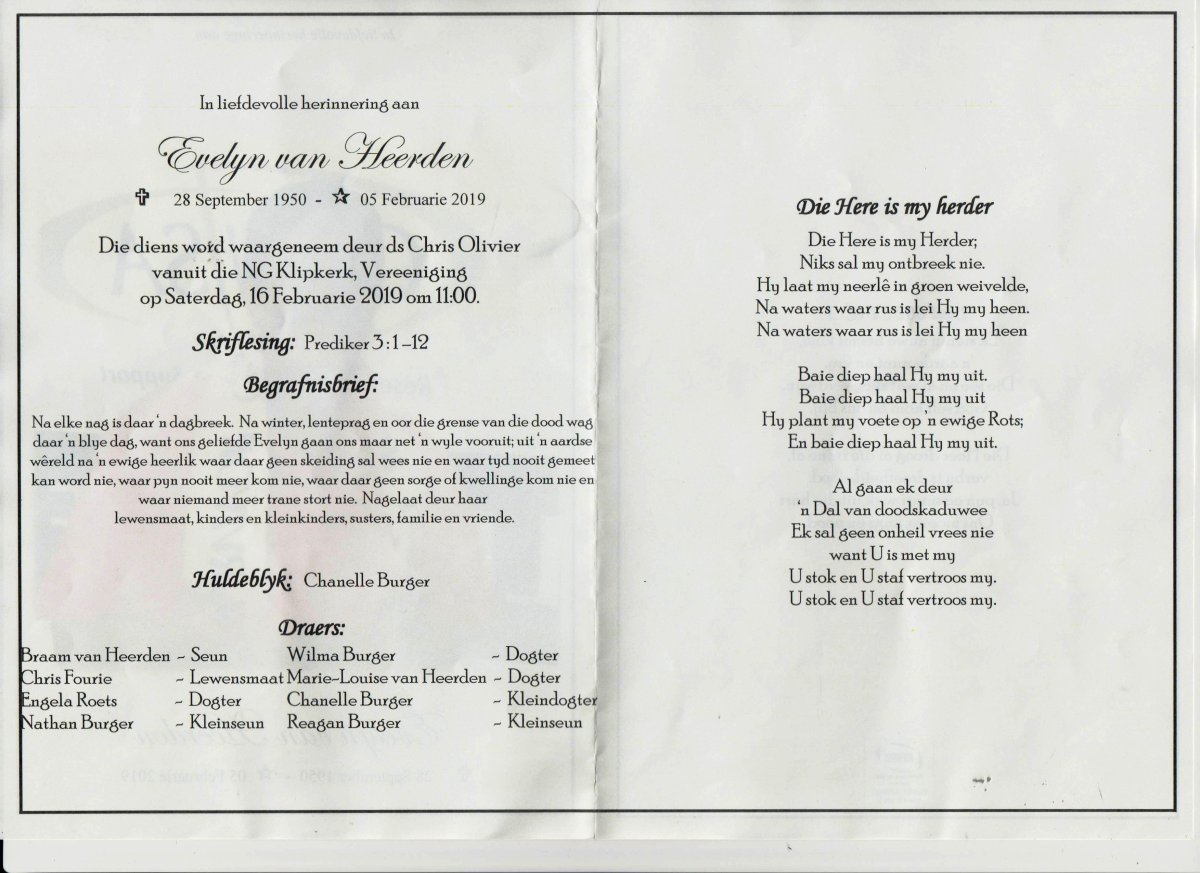 In liefdevolle herinnering aan
Evelyn van Heerden
✞ 28 September 1950 - ☆ 05 Februarie 2019
Die diens word waargeneem deur ds Chris Olivier
vanuit die NG Klipkerk, Vereeniging
op Saterdag, 16 Februarie 2019 om 11:00.
Skriflesing: Prediker 3:1–12
Begrafnisbrief:
Na elke nag is daar ‘n dagbreek. Na winter, lenteprag en oor die grense van die dood wag
daar ‘n blye dag, want ons geliefde Evelyn gaan ons maar net ‘n wyle vooruit; uit ‘n aardse
wêreld na ‘n ewige heerlik waar daar geen skeiding sal wees nie en waar tyd nooit gemeet
kan word nie, waar pyn nooit meer kom nie, waar daar geen sorge of kwellinge kom nie en
waar niemand meer trane stort nie. Nagelaat deur haar
lewensmaat, kinders en kleinkinders, susters, familie en vriende.
Huldeblyk: Chanelle Burger
Draers:
Braam van Heerden ~ Seun Wilma Burger ~ Dogter
Chris Fourie ~ Lewensmaat Marie~Louise van Heerden ~ Dogter
Engela Roets ~ Dogter Chanelle Burger ~ Kleindogter
Nathan Burger ~ Kleinseun Reagan Burger ~ Kleinseun
Die Here is my herder
Die Here is my Herder;
Niks sal my ontbreek nie.
Hy laat my neerlê in groen weivelde,
Na waters waar rus is lei Hy my heen.
Na waters waar rus is lei Hy my heen
Baie diep haal Hy my uit.
Baie diep haal Hy my uit
Hy plant my voete op ‘n ewige Rots;
En baie diep haal Hy my uit.
Al gaan ek deur
‘n Dal van doodskaduwee
Ek sal geen onheil vrees nie
want U is met my
U stok en U staf vertroos my.
U stok en U staf vertroos my.